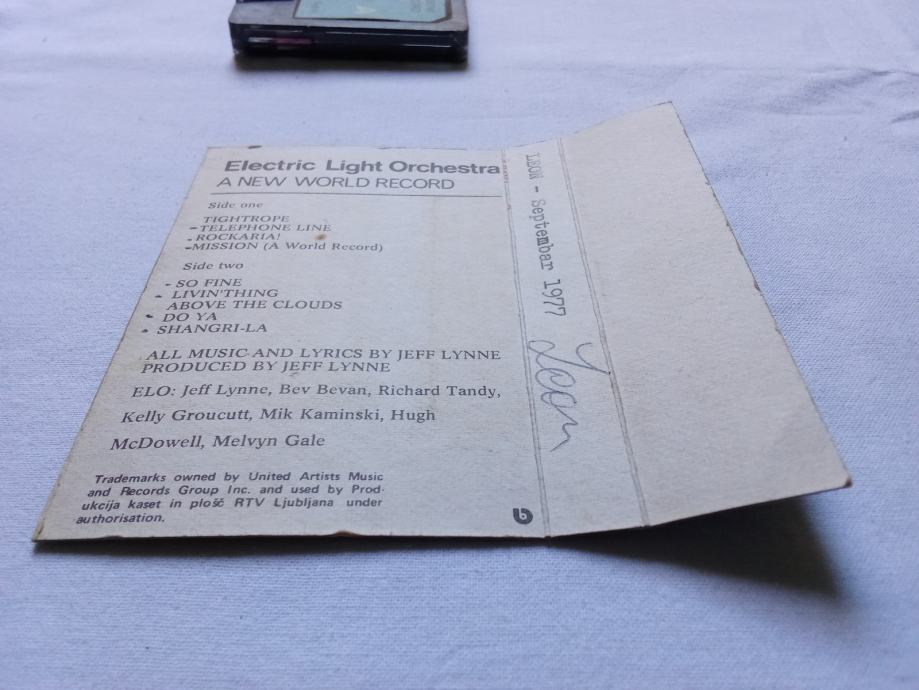 Electric Light Orchestra
A NEW WORLD RECORD
Side one
TIGHTROPE
-TELEPHONE LINE
-ROCKARIA!
-MISSION (A World Record)
Side two
- SO FINE
- LIVIN'THING
ABOVE THE CLOUDS
- DO YA
- SHANGRI-LA
ALL MUSIC AND LYRICS BY JEFF LYNNE
PRODUCED BY JEFF LYNNE
ELO: Jeff Lynne, Bev Bevan, Richard Tandy,
Kelly Groucutt, Mik Kaminski, Hugh
McDowell, Melvyn Gale
Trademarks owned by United Artists Music
and Records Group Inc. and used by Prod-
ukcija kaset in plošč RTV Ljubljana under
authorisation.
LEON - Septembar 1977